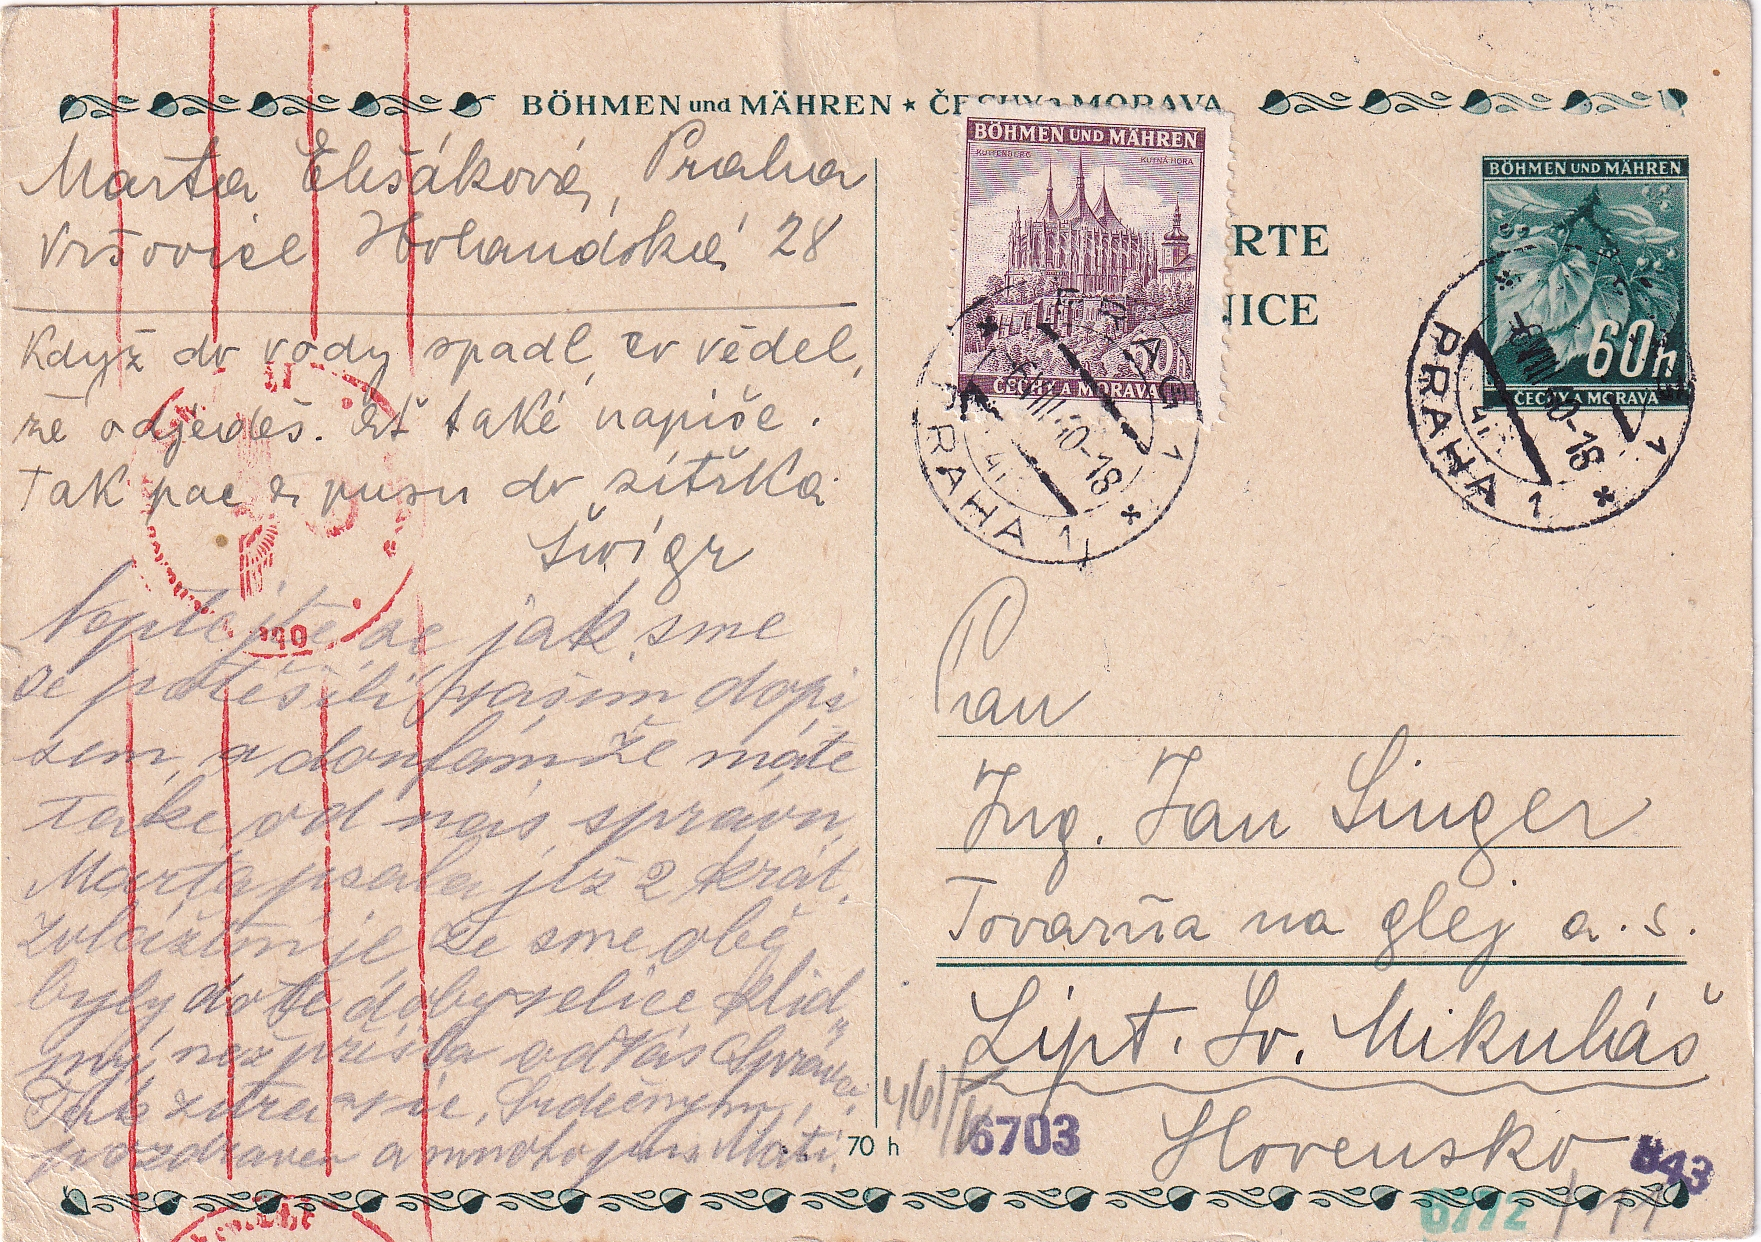 BÖHMEN und MÄHREN ★ ČECHY a MORAVA
Marta Elišáková, Praha
Vršovice Holandská 28
Když do vody spadl, co věděl,
že odjedeš. Ať také napíše.
Tak pac a pusu do zítřka
Švígr
se jak sme
se potěšili vašim dopi
sem, a doufám že máte
take od nás správu,
Marta psala již 2 krát.
je že sme obě
byly do té doby velice klid
než přišla od Vás Správa.
Tak zítra více. Srdečným
pozdravem a mnoho pus Máti.
BÖHMEN UND MÄHREN
KUTTENBERG KUTNÁ HORA
60h
ČECHY A MORAVA
BÖHMEN UND MÄHREN
60h
ČECHY A MORAVA
RTE
NICE
PRAG 1
-6.VIII.40-18
PRAHA 1
PRAG 1
-6.VIII.40-18
PRAHA 1
Pan
Ing. Jan Singer
Továrňa na glej a. s.
Lipt. Sv. Mikuláš
Slovensko
70 h
6703
843
6772